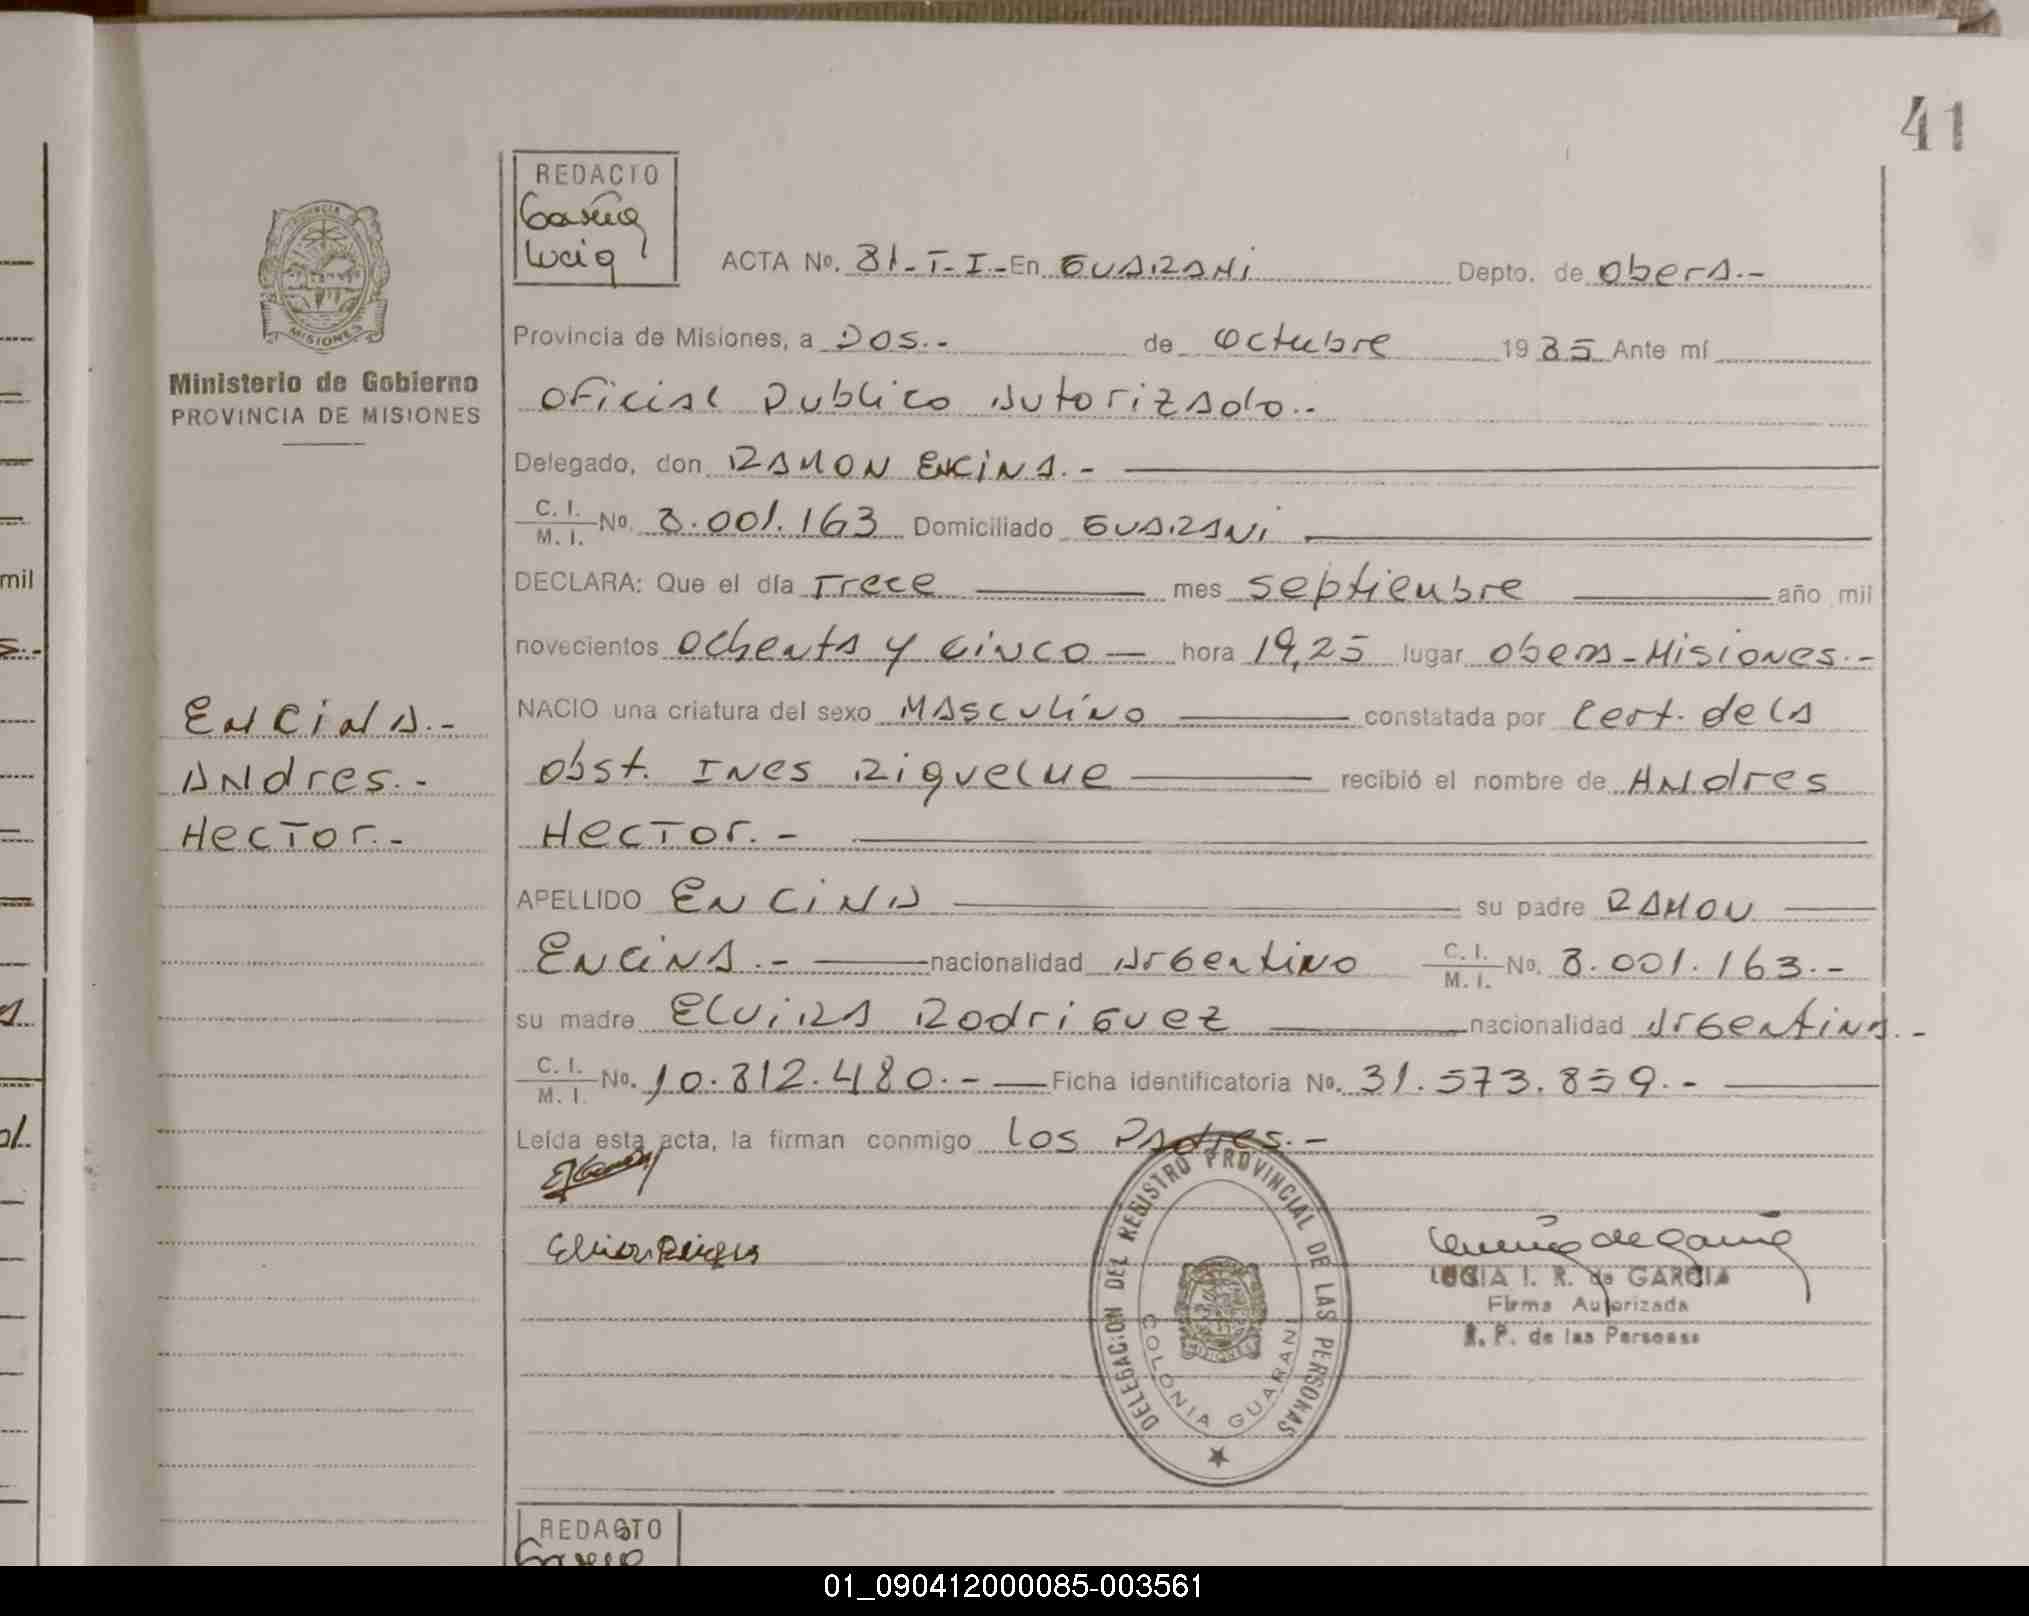 41
REDACTO
Garcia
Lucia
ACTA No. 81-T-I.- En GUARANi Depto. de Obera.-
Provincia de Misiones, a Dos.- de Octubre 1985 Ante mí
Oficial Publico Autorizado.-
Ministerio de Gobierno
PROVINCIA DE MISIONES
MISIONES
Delegado, don RAMON ENCiNA.-
C. I. M. I. No. 8.001.163 Domiciliado GUARANi
DECLARA: Que el día Trece mes septiembre año mil
novecientos ochenta y cinco hora 19,25 lugar Obera-Misiones.-
NACIO una criatura del sexo MAsculíno constatada por Cert. de la
Obst. INes Riquelme recibió el nombre de ANdres
Hector.-
ENCiNA.-
ANdres.-
Hector.-
APELLIDO ENCiNA su padre RAMON
ENCiNA.- nacionalidad Argentino C. I. M. I. No. 8.001.163.-
su madre ElviRA Rodriguez nacionalidad Argentina.-
C. I. M. I. No. 10.812.480.- Ficha identificatoria No. 31.573.859.-
Leída esta acta, la firman conmigo los Padres.-
DELEGACION DEL REGISTRO PROVINCIAL DE LAS PERSONAS
COLONIA GUARANI
MISIONES
LUCIA I. R. de GARCIA
Firma Autorizada
R. P. de las Personas
REDACTO
mil
01_090412000085-003561